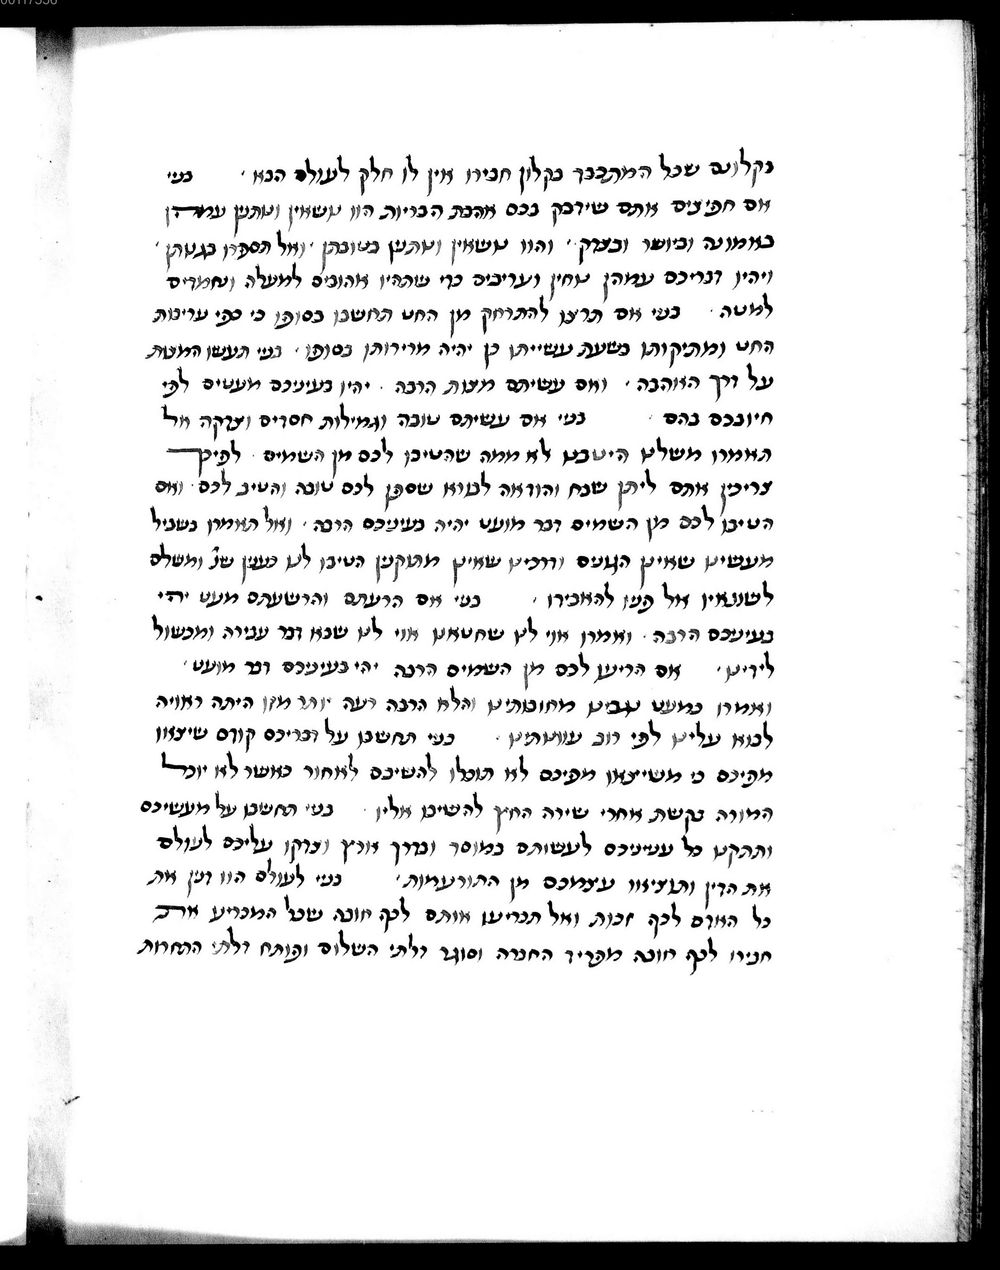 בקלונם שכל המתכבד בקלון חבירו אין לו חלק לעולם הבא · בני
אם חפיצים אתם שידבק בכם אהבת הבריות הוו נושאין ונותנין עמהן
באמונה וביושר ובצדק · והוו נושאין ונותנין בטובתן · ואל תספרו בגנותן ·
ויהיו דבריכם עמהן נוחין ועריבים כדי שתהיו אהובים למעלה ונחמדים
למטה · בני אם תרצו להתרחק מן החטא תחשבו בסופו כי כפי עריבות
החטא ומתיקותו בשעת עשייתו כן יהיה מרירותו בסופו · בני תעשו המצות
על דרך האהבה · ואם עשיתם מצות הרבה · יהיו בעיניכם מעטים לפי
חיובכם בהם · בני אם עשיתם טובה וגמילות חסדים וצדקה אל
תאמרו משלנו היטבנו אלא ממה שהטיבו לכם מן השמים · לפיכך
צריכין אתם ליתן שבח והודאה לבורא שספק לכם טובה והטיב לכם · ואם
הטיבו לכם מן השמים דבר מועט יהיה בעיניכם הרבה · ואל תאמרו בשביל
מעשינו שאינן הגונים ודרכינו שאינן מתוקנין הטיבו לנו כענין שנ' ומשלם
לשונאיו אל פניו להאבידו · בני אם הרעתם והרשעתם מעט יהי
בעיניכם הרבה · ואמרו אוי לנו שחטאנו אוי לנו שבא דבר עבירה ומכשול
לידינו · אם הריעו לכם מן השמים הרבה יהי בעיניכם דבר מועט ·
ואמרו כמעט גבינו מחובותינו והלא הרבה רעה יותר מזו היתה ראויה
לבוא עלינו לפי רוב עוונותינו · בני תחשבו על דבריכם קודם שיצאו
מפיכם כי משייצאו מפיכם לא תוכלו להשיבם לאחור כאשר לא יוכל
המורה בקשת אחרי שירה החץ להשיבו אליו · בני תחשבו על מעשיכם
ותתקנו כל ענייניכם לעשותם במוסר ובדרך ארץ וצדקו עליכם לעולם
את הדין ותוציאו עצמכם מן התורעמות · בני לעולם הוו דנין את
כל האדם לכף זכות ואל תכריעו אותם לכף חובה שכל המכריע את
חבירו לכף חובה מפריד החברה וסוגר דלתי השלום ופותח דלתי התחרות